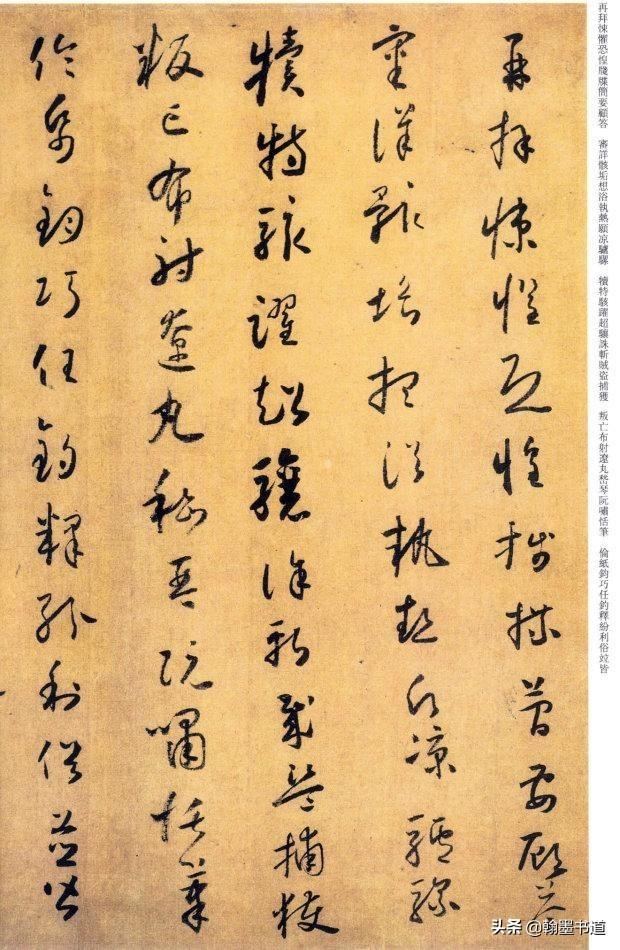 再拜悚懼恐惶牋牒簡要顧答　審詳骸垢想浴執熱願凉驢騾　犢特駭躍超驤誅斬賊盜捕獲　叛亡布射遼丸嵇琴阮嘯恬筆　倫紙鈞巧任釣釋紛利俗竝皆
再拜悚懼恐惶牋牒簡要顧答
審詳骸垢想浴執熱願凉驢騾
犢特駭躍超驤誅斬賊盜捕獲
叛亡布射遼丸嵇琴阮嘯恬筆
倫紙鈞巧任釣釋紛利俗竝皆
头条 @翰墨书道